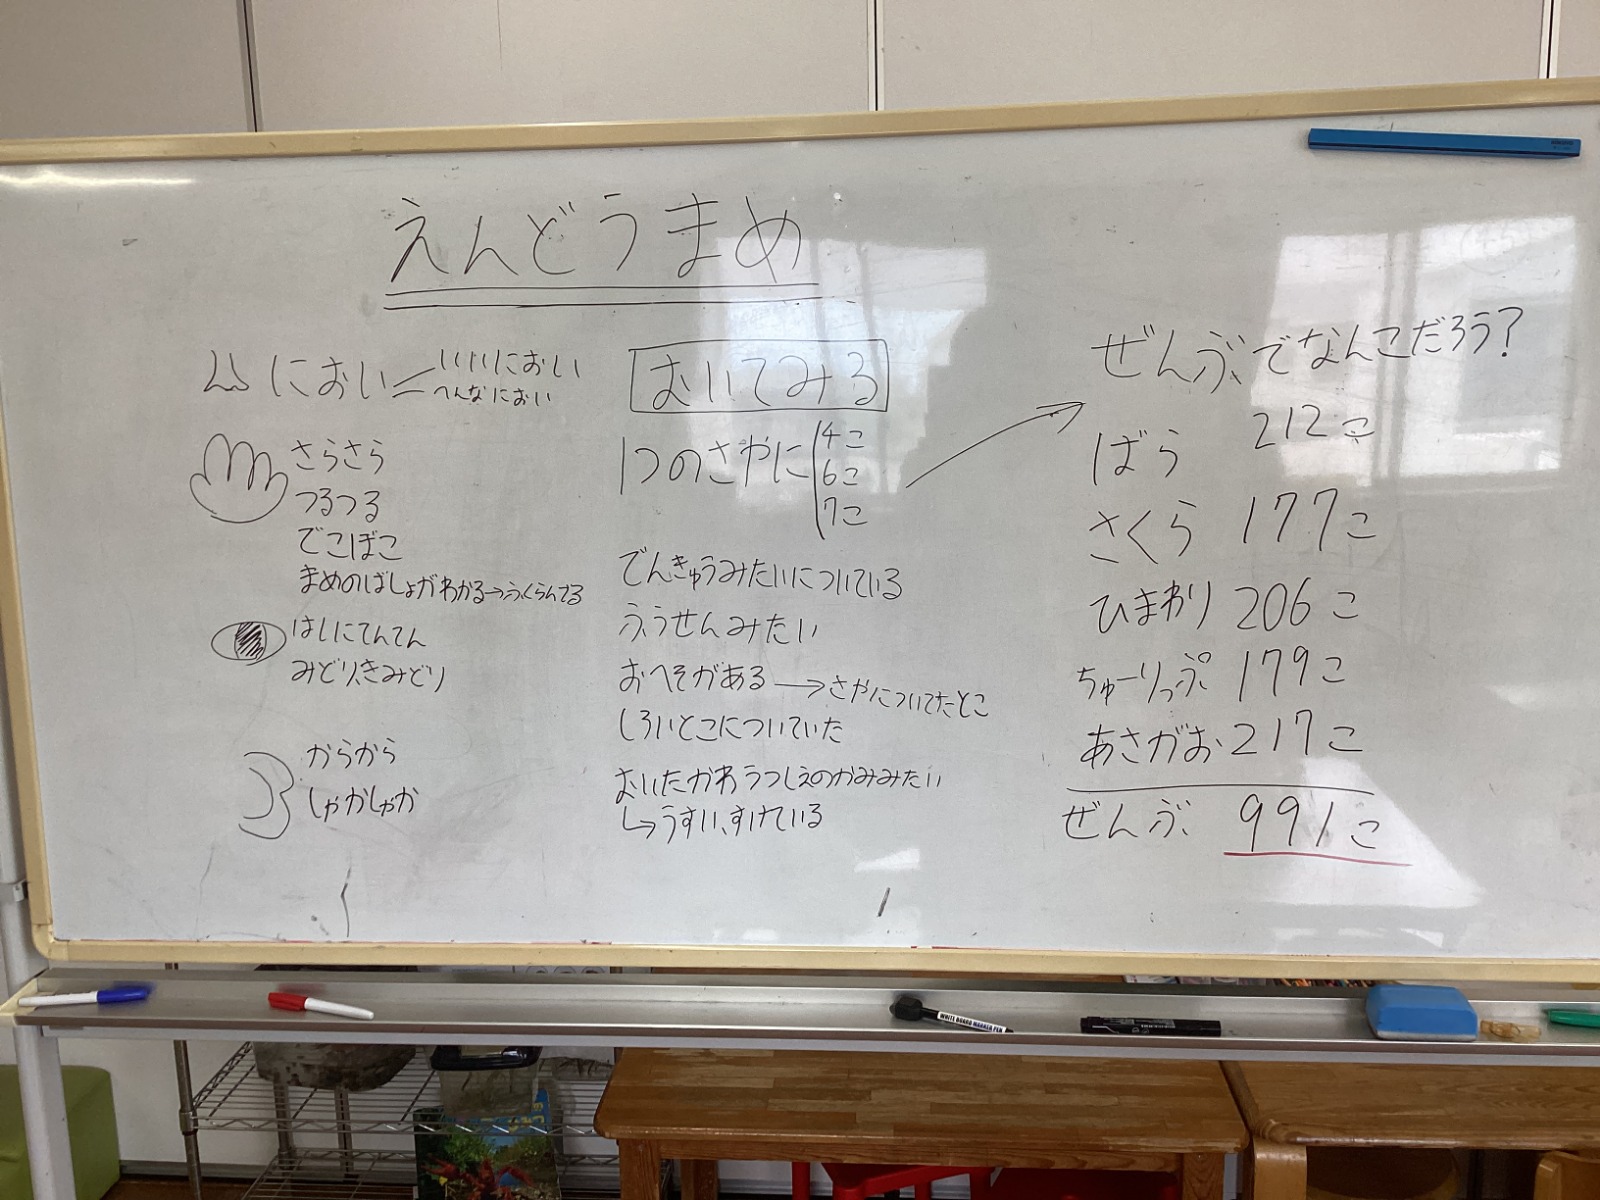 えんどうまめ
におい
いいにおい
へんなにおい
さらさら
つるつる
でこぼこ
まめのばしょがわかる→ふくらんでる
はしにてんてん
みどり、きみどり
からから
しゃかしゃか
むいてみる
1つのさやに
4こ
6こ
7こ
でんきゅうみたいについている
ふうせんみたい
おへそがある→さやについてたとこ
しろいとこについていた
むいたかわうつしえのかみみたい
↳うすい、すけている
ぜんぶでなんこだろう?
ばら 212こ
さくら 177こ
ひまわり 206こ
ちゅーりっぷ 179こ
あさがお 217こ
ぜんぶ 991こ
WHITE BOARD MARKER PEN